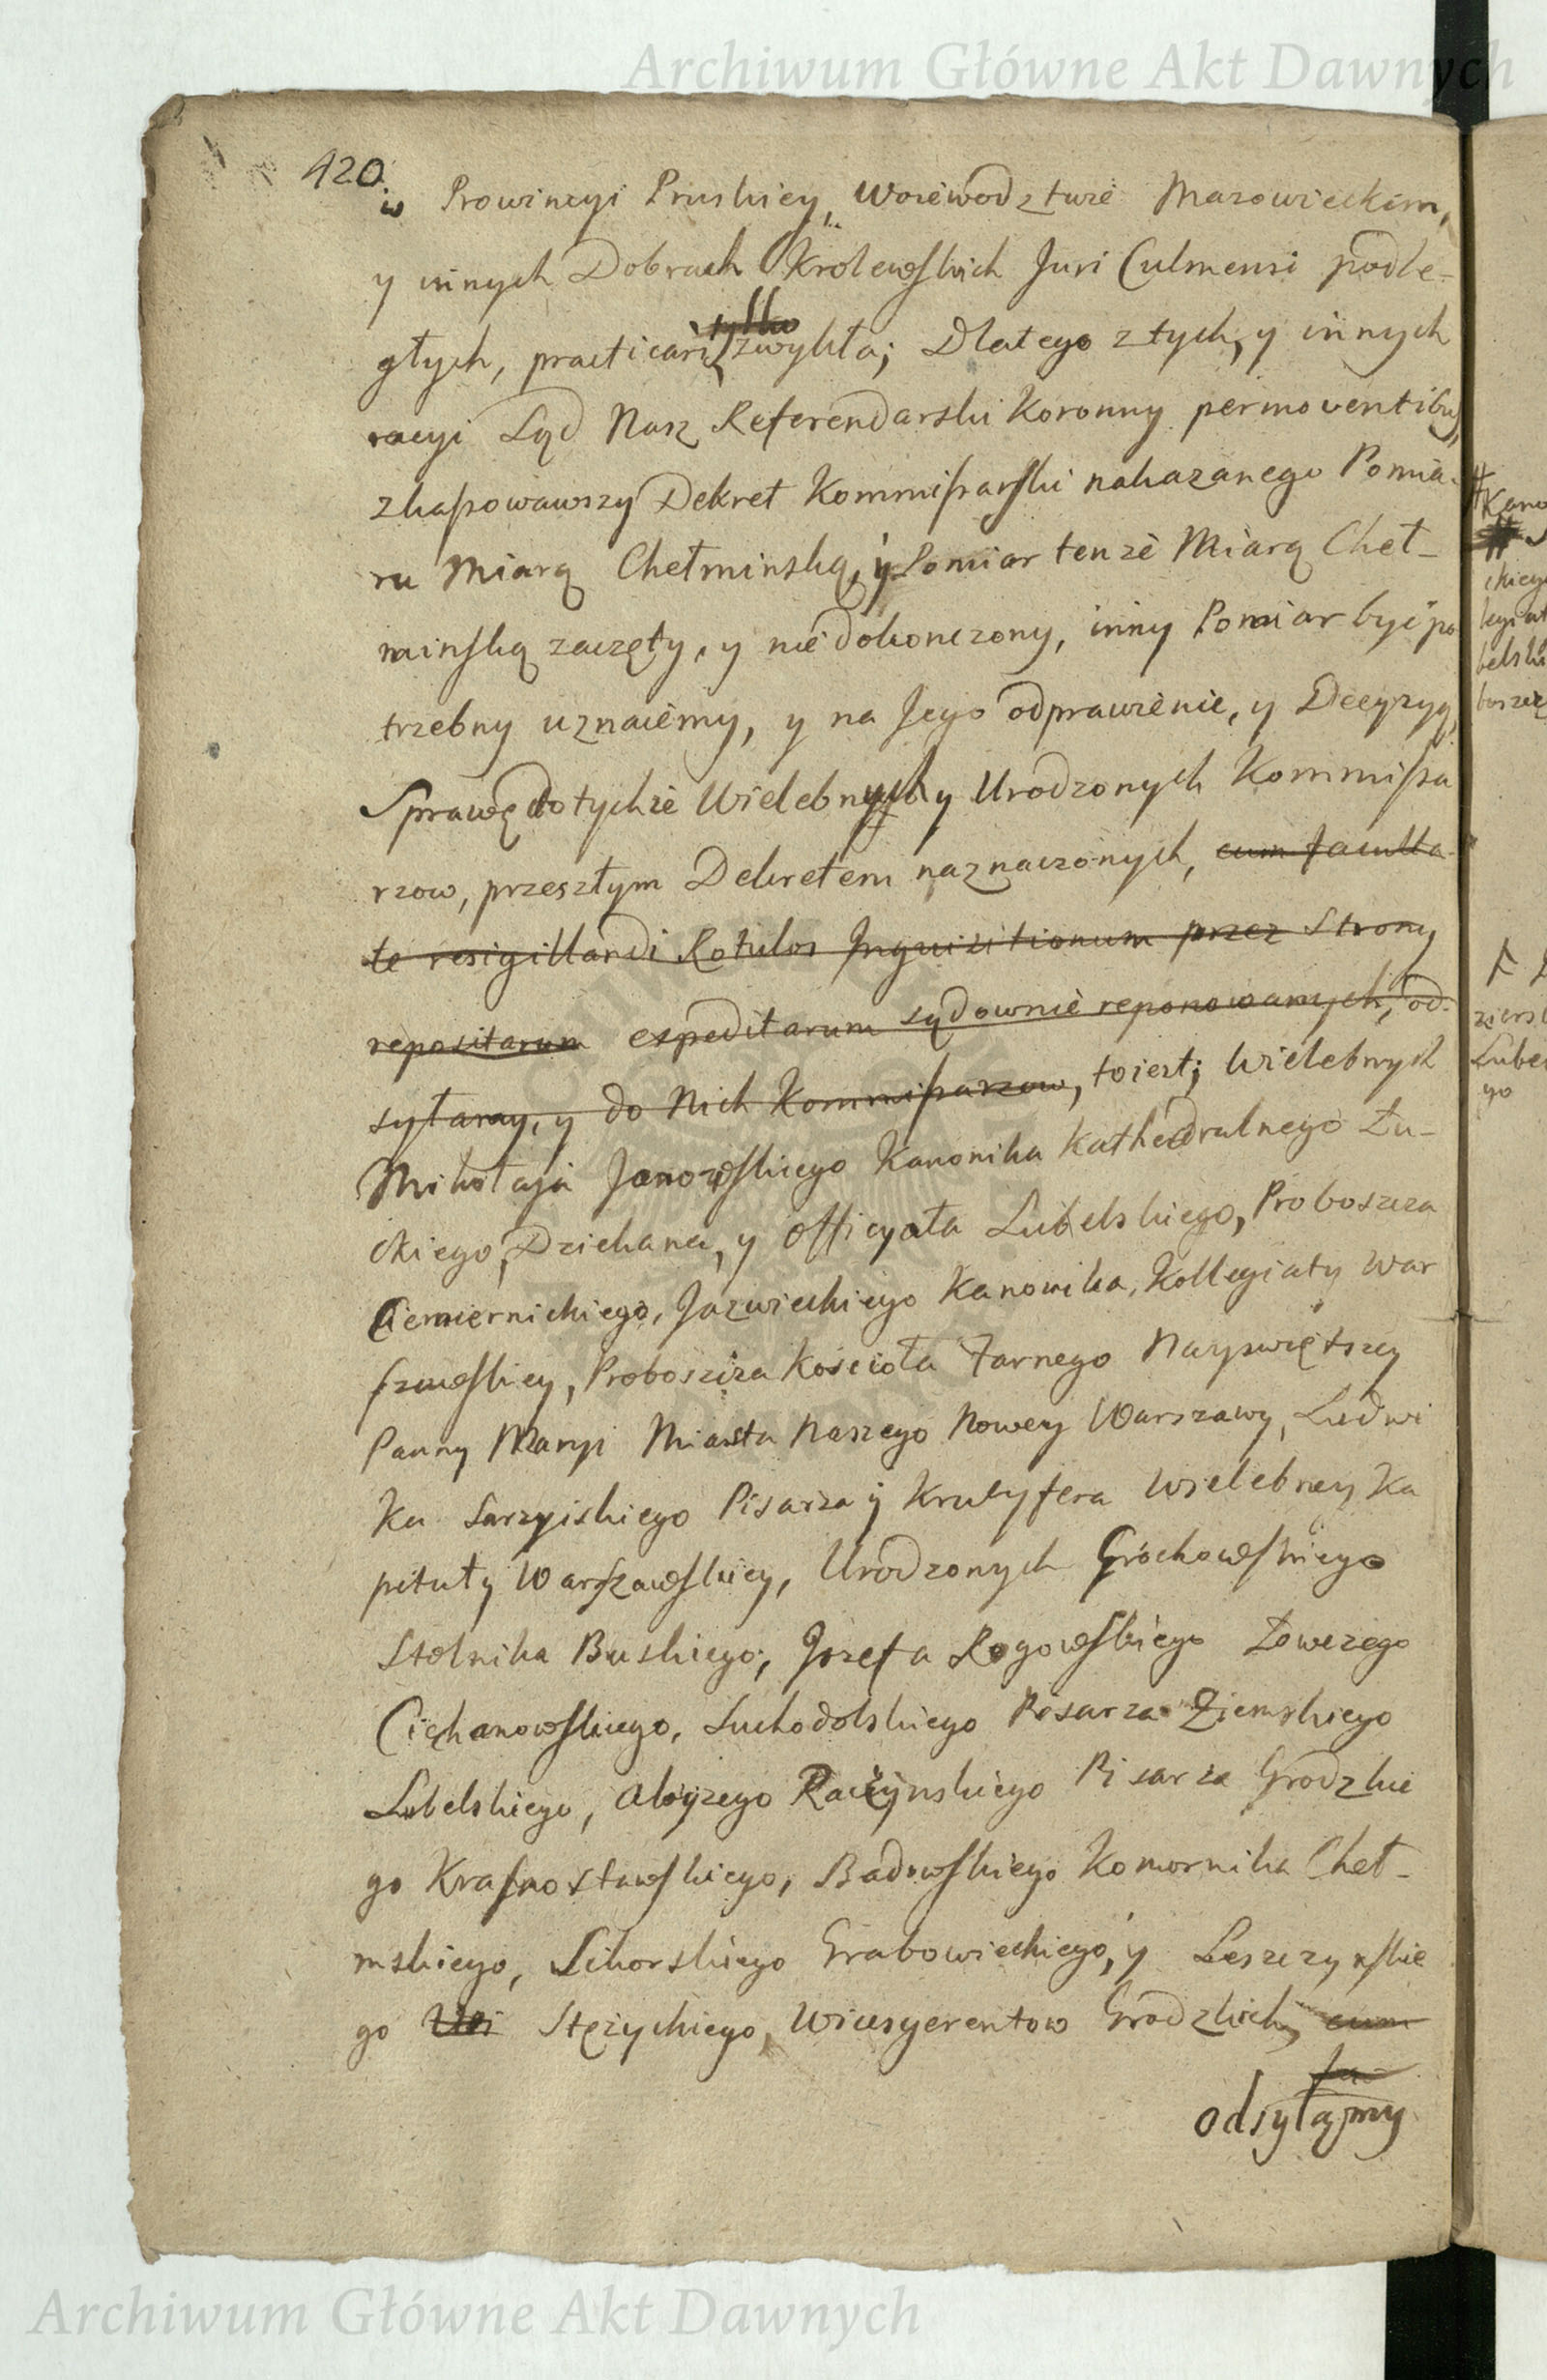 Archiwum Główne Akt Dawnych
420.
w Prowincyi Pruskiey, Woiewodztwie Mazowieckim,
y innych Dobrach Krolewskich Juri Culmensi podle-
głych, practicari tylko zwykła; Dlatego z tych, y innych
racyi Sąd Nasz Referendarski Koronny permoventibus,
zkassowawszy Dekret Kommissarski nakazanego Pomia-
ru Miarą Chełminską, y Pomiar tenże Miarą Cheł-
minską zaczęty, y nie dokonczony, inny Pomiar być po
trzebny uznaiemy, y na Jego odprawienie, y Decyzyą,
Sprawę do tychże Wielebnych y Urodzonych Kommissa
rzow, przeszłym Dekretem naznaczonych, cum faculta
te resigillandi Rotulos Inquisitionum przez Strony
repositarum expeditarum sądownie reponowanych, od-
syłamy, y do Nich Kommissarzow, toiest; Wielebnych
Mikołaja Janowskiego Kanonika Kathedralnego Łu-
ckiego, Dziekana, y Officyała Lubelskiego, Proboszcza
Ciemiernickiego, Jazwieckiego Kanonika, Kollegiaty War
szawskiey, Proboszcza Kościoła Farnego Nayswiętszey
Panny Maryi Miasta Naszego Nowey Warszawy, Ludwi
ka Sarzyiskiego Pisarza y Krucyfera Wielebney Ka
pituły Warszawskiey, Urodzonych Grochowskiego
Stolnika Buskiego, Jozefa Rogowskiego Łowczego
Ciechanowskiego, Suchodolskiego Pisarza Ziemskiego
Lubelskiego, Aloyzego Raczynskiego Pisarza Grodzkie
go Krasnostawskiego, Badowskiego Komornika Cheł-
mskiego, Sikorskiego Grabowieckiego, y Leszczynskie
go Stężyckiego, Wicesgerentow Grodzkich, cum
fa-
odsyłamy
Archiwum Główne Akt Dawnych